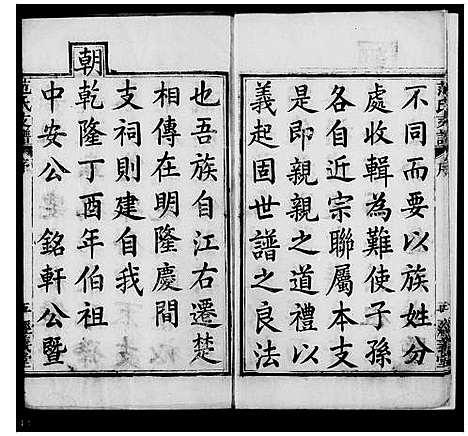 不同而要以族姓分
處收輯為難使子孫
各自近宗聯屬本支
是即親親之道禮以
義起固世譜之良法
也吾族自江右遷楚
相傳在明隆慶間
支祠則建自我
朝
乾隆丁酉年伯祖
中安公 銘軒公暨